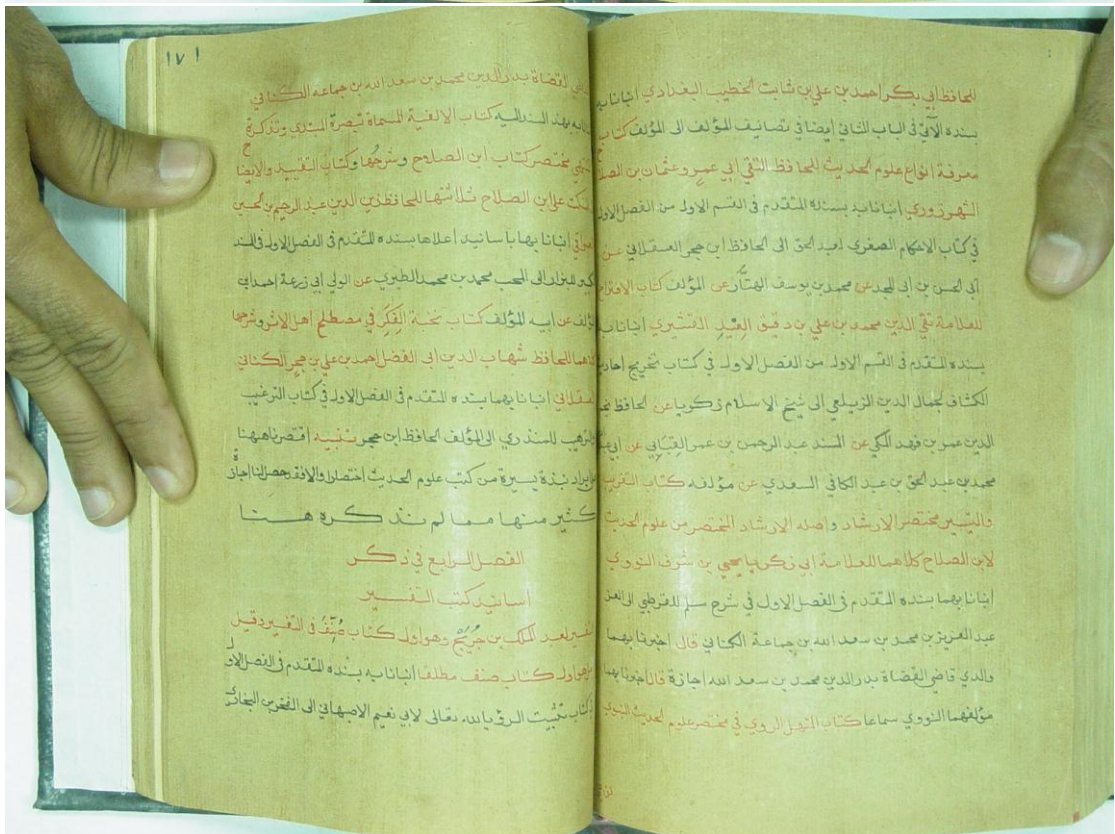 للحافظ أبي بكر احمد بن علي بن ثابت الخطيب البغدادي انبانا به
بسنده الآتي في الباب الثاني ايضا في تصانيف المؤلف الى المؤلف كتاب
معرفة انواع علوم الحديث للحافظ التقي ابي عمرو عثمان بن الصلاح
الشهرزوري انبانا به بسنده المتقدم في القسم الاول من الفصل الاول
في كتاب الاحكام الصغرى لعبد الحق الى الحافظ ابن حجر العسقلاني عن
أبي الحسن بن أبي المجد عن محمد بن يوسف المهتار عن المؤلف كتاب الاقتراح
للعلامة تقي الدين محمد بن علي بن دقيق العيد القشيري انبانا به
بسنده المتقدم في القسم الاول من الفصل الاول في كتاب تخريج احاديث
الكشاف لجمال الدين الزيلعي الى شيخ الاسلام زكريا عن الحافظ نجم
الدين عمر بن فهد المكي عن المسند عبد الرحمن بن عمر القبابي عن ابي
محمد بن عبد الحق بن عبد الكافي السعدي عن مؤلفه كتاب التقريب
والتيسير مختصر الارشاد واصله الارشاد المختصر من علوم الحديث
لابن الصلاح كلاهما للعلامة أبي زكريا يحيى بن شرف النووي
انبانا بهما بسنده المتقدم في الفصل الاول في شرح مسلم للقرطبي الى العز
عبد العزيز بن محمد بن سعد الله بن جماعة الكناني قال اخبرنا بهما
والدي قاضي القضاة بدر الدين محمد بن سعد الله اجازة قال اخبرنا بهما
مؤلفهما النووي سماعا كتاب المنهل الروي في مختصر علوم الحديث النبوي
١٧١
القضاة بدر الدين محمد بن سعد الله بن جماعه الكناني
بهذ السند اليه كتاب الالفية المسماة تبصرة المبتدي وتذكرة
المنتهي مختصر كتاب ابن الصلاح وشرحها وكتاب التقييد والايضاح
والنكت على ابن الصلاح ثلاثتها للحافظ زين الدين عبد الرحيم بن الحسين
العراقي انبانا بها باسانيد أعلاها بسنده المتقدم في الفصل الاول في المسند
الكبير للبزار الى المحب محمد بن محمد الطبري عن الولي ابي زرعة احمد ابن
المؤلف عن ابيه المؤلف كتاب نخبة الفكر في مصطلح اهل الاثر وشرحها
كلاهما للحافظ شهاب الدين ابي الفضل احمد بن علي بن حجر الكناني
العسقلاني انبانا بهما بسنده المتقدم في الفصل الاول في كتاب الترغيب
والترهيب للمنذري الى المؤلف الحافظ ابن حجر تنبيه اقتصرنا ههنا
على ايراد نبذة يسيرة من كتب علوم الحديث اختصارا والا فقد حصل لنا اجازة
كثير منها مما لم نذكره هنا
الفصل الرابع في ذكر
أسانيد كتب التفسير
التفسير لعبد الملك بن جريج وهو اول كتاب صنف في التفسير وقيل
بل هو اول كتاب صنف مطلقا انبانا به بسنده المتقدم في الفصل الاول
في كتاب تثبيت الرؤيا لله تعالى لابي نعيم الاصبهاني الى الفخر بن البخاري